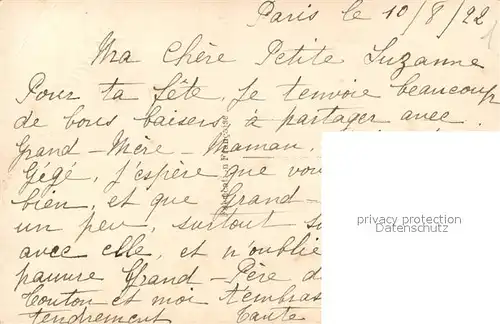 Paris le 10/8/22
Ma Chère Petite Suzanne
Pour ta fête, Je t'envoie beaucoup
de bons baisers, à partager avec
Grand-Mère-Maman,
Gégé, J'espère que vou
bien, et que Grand-
un peu, surtout s
avec elle, et n'oublie
pauvre Grand-Père d
Tonton et moi t'embras
tendrement Tante
Fabrication Française
privacy protection
Datenschutz